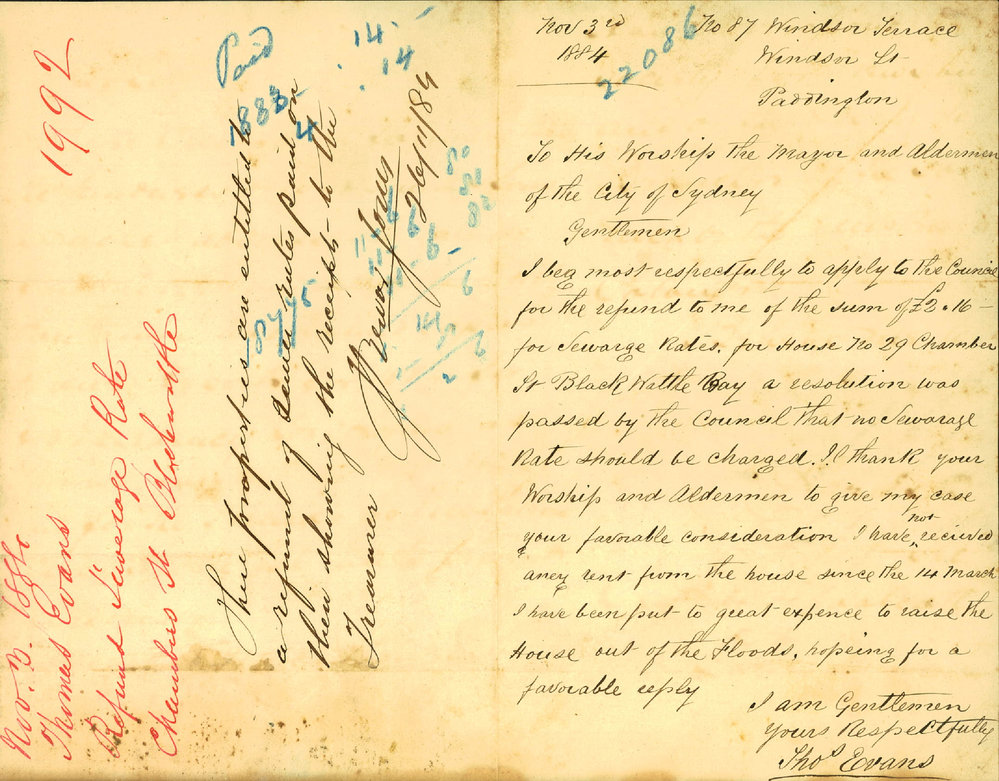 Nov 3rd
1884
No 87 Windsor Terrace
Windsor St
Paddington
22086
To His Worship the Mayor and Aldermen
of the City of Sydney
Gentlemen
I beg most respectfully to apply to the Council
for the refund to me of the sum of £2.16 -
for Sewarge Rates, for House No 29 Chamber
St Black Wattle Bay a resolution was
passed by the Council that no Sewarage
Rate should be charged. I'l thank your
Worship and Aldermen to give my case
your favorable consideration I have not recieved
aney rent from the house since the 14 March
I have been put to great expence to raise the
House out of the Floods, hopeing for a
favorable reply
I am Gentlemen
Yours Respectfully
Thos Evans
1992
Nov. 3. 1884
Thomas Evans
Refund Sewerage Rate
Chambers St Blackwattle
Paid
1883
4
84
85
These properties are entitled to
a refund of rates paid on
then showing the receipts to the
Treasurer
26/11/84
14
14
8
8
8
11
6
11
6
11
6
6
14
6
2